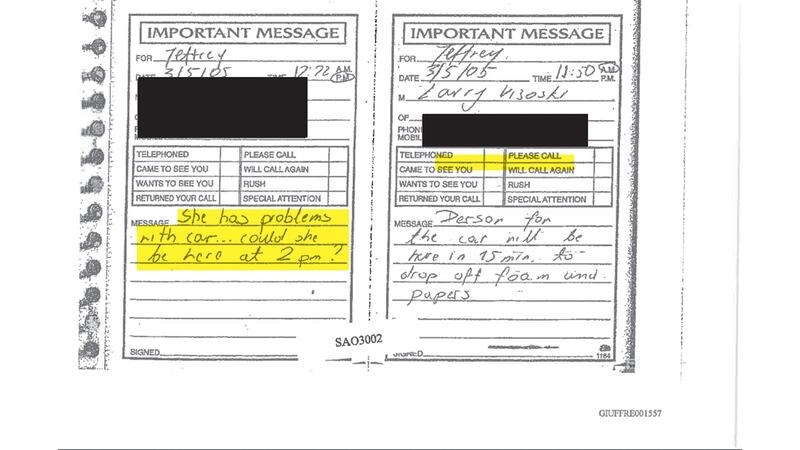 IMPORTANT MESSAGE
FOR Jeffrey
DATE 3/5/05 TIME A.M.
P.M.
M
TELEPHONED PLEASE CALL
CAME TO SEE YOU WILL CALL AGAIN
WANTS TO SEE YOU RUSH
RETURNED YOUR CALL SPECIAL ATTENTION
MESSAGE She has problems
with car... could she
be here at 2 pm?
SIGNED
IMPORTANT MESSAGE
FOR Jeffrey
DATE 3/5/05 TIME 11:50 A.M.
P.M.
M Larry Visoski
OF
PHONE
MOBILE
TELEPHONED PLEASE CALL
CAME TO SEE YOU WILL CALL AGAIN
WANTS TO SEE YOU RUSH
RETURNED YOUR CALL SPECIAL ATTENTION
MESSAGE Person for
the car will be
here in 15 min. to
drop off foam and
papers
SIGNED
1184
SAO3002
GIUFFRE001557